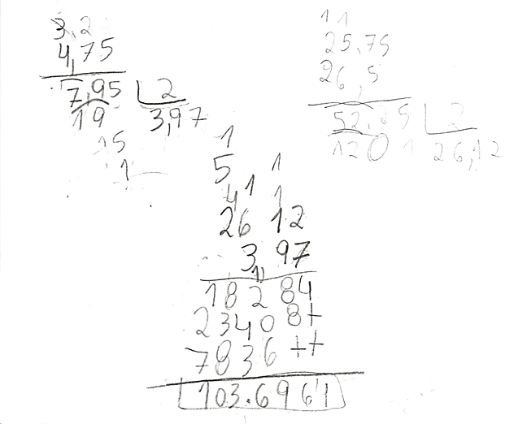 3,2
4,75
7,95 2
19 3,97
15
1
1 1
25,75
26,5
52,25 2
120 1 26,12
1
5 1
4 1 1
26 12
3,97
18284
23408+
7836++
103.6961